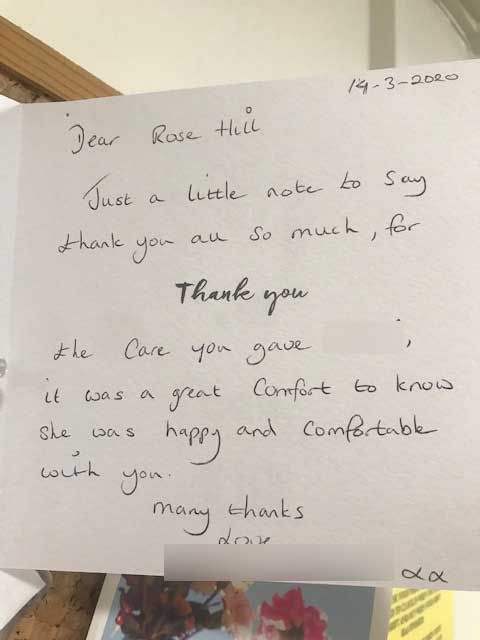 14-3-2020
Dear Rose Hill
Just a little note to say
thank you all so much, for
Thank you
the Care you gave ,
it was a great Comfort to know
She was happy and Comfortable
with you.
many thanks
Love
xx